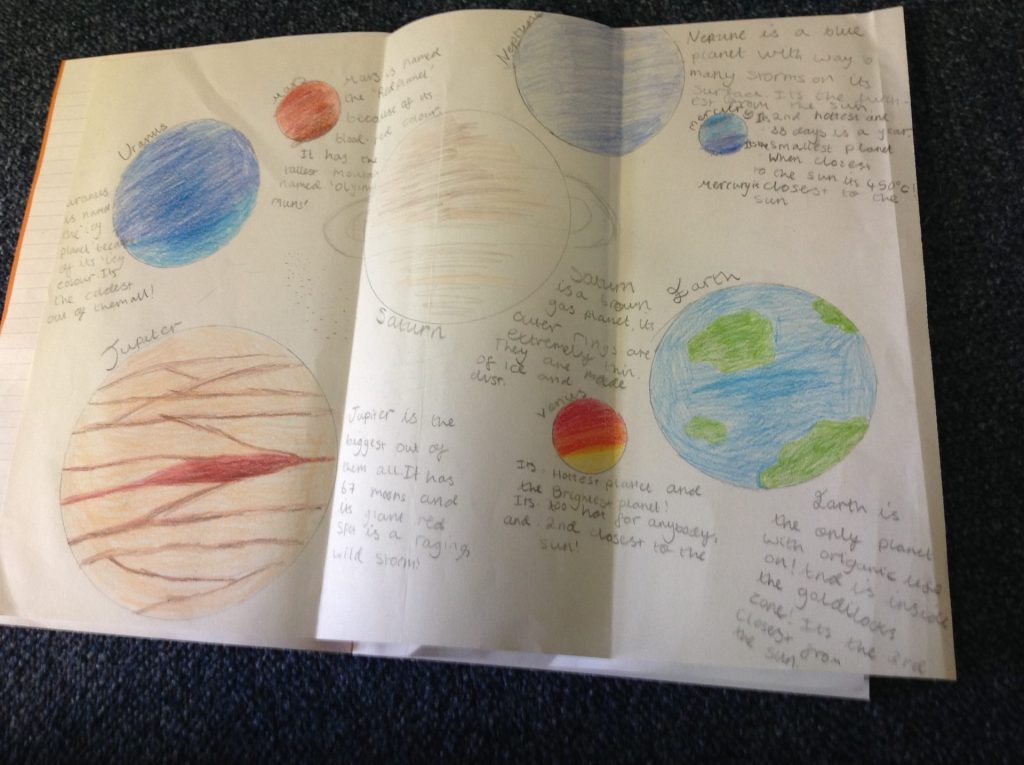 Uranus
Uranus
is named
the 'icy
planet' because
of its 'icy'
colour. Its
the coldest
out of them all!
Mars
Mars is named
the 'Red Planet'
because of its
blood-red colour.
It has the
tallest
named
Mons!
Neptune
Neptune is a blue
planet with way o
many storms on its
surface. Its the
est from the sun
Mercury
2nd hottest and
88 days is a year
smallest planet
When closest
to the sun its 450°C!
Mercury is closest to the
sun
Saturn
Saturn
is a brown
gas planet, its
outer rings are
extremely thin.
They are made
of ice and
dust.
Earth
Earth is
the only planet
with organic life
on! And is inside
the goldilocks
zone! Its the 2nd
closest from
the sun
Jupiter
Jupiter is the
biggest out of
them all. It has
67 moons and
its giant red
spot is a raging,
wild storm!
Venus
Its Hottest planet and
the Brightest planet!
Its too hot for anybody,
and 2nd closest to the
sun!